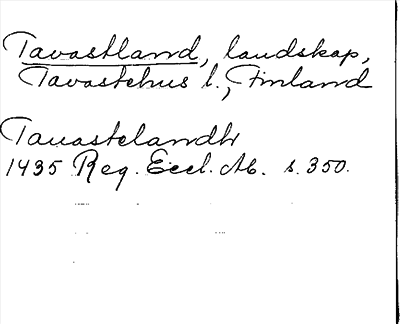 Tavastland, landskap,
Tavastehus l., Finland
Tauastelandh
1435 Reg. Eccl. Ab. s. 350.